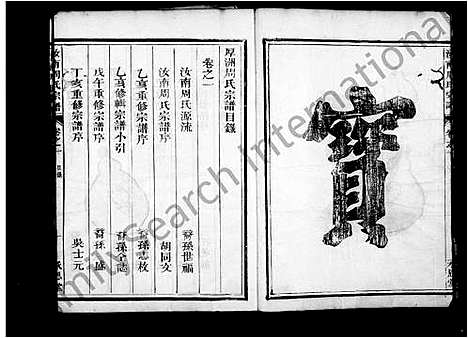 寶
厚洲周氏宗譜目錄
卷之一
汝南周氏源流 裔孫世福
汝南周氏宗譜序 胡同文
乙亥修宗譜序 裔孫志枚
乙亥修輯宗譜小引 裔孫全志
戊午重修宗譜序 裔孫盛
丁亥重修宗譜序 吳士元
汝南周氏宗譜 卷之一 目錄
FamilySearch International